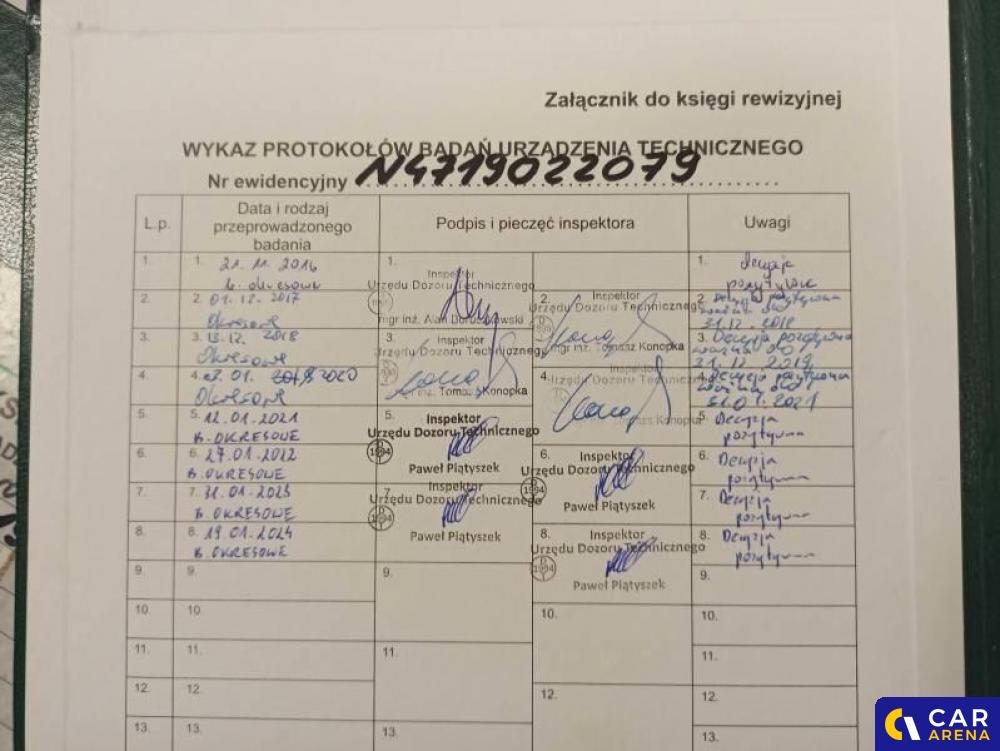 Załącznik do księgi rewizyjnej
WYKAZ PROTOKOŁÓW BADAŃ URZĄDZENIA TECHNICZNEGO
Nr ewidencyjny N4719022079
L.p.
Data i rodzaj
przeprowadzonego
badania
Podpis i pieczęć inspektora
Uwagi
1.
1. 21.11.2016
b. okresowe
1.
Inspektor
Urzędu Dozoru Technicznego
mgr inż. Alan
1. decyzja
pozytywne
2.
2. 01.12.2017
Okresowe
2.
Inspektor
Urzędu Dozoru Technicznego
mgr inż. Tomasz Konopka
2. Decyzja pozytywna
ważna do
31.12.2018
3.
3. 13.12.2018
Okresowe
3.
Inspektor
Urzędu Dozoru Technicznego
mgr inż. Tomasz Konopka
3. Decyzja pozytywna
ważna do
12.2019
4.
4. 01. 2020
Okresowe
4.
Inspektor
Urzędu Dozoru Technicznego
Tomasz Konopka
4. Decyzja pozytywna
ważna do
31.01.2021
5.
5. 12.01.2021
B. OKRESOWE
5.
Inspektor
Urzędu Dozoru Technicznego
1994
Paweł Piątyszek
5. Decyzja
pozytywna
6.
6. 27.01.2022
B. OKRESOWE
6.
Inspektor
Urzędu Dozoru Technicznego
1994
Paweł Piątyszek
6. Decyzja
pozytywna
7.
7. 31.01.2023
B. OKRESOWE
7.
Inspektor
Urzędu Dozoru Technicznego
1994
Paweł Piątyszek
7. Decyzja
pozytywna
8.
8. 19.01.2024
B. OKRESOWE
8.
Inspektor
Urzędu Dozoru Technicznego
1994
Paweł Piątyszek
8. Decyzja
pozytywna
9.
9.
9.
9.
10.
10
10.
10.
11.
11.
11.
11.
12.
12.
12.
12.
13.
13.
13.
13.
CAR
ARENA